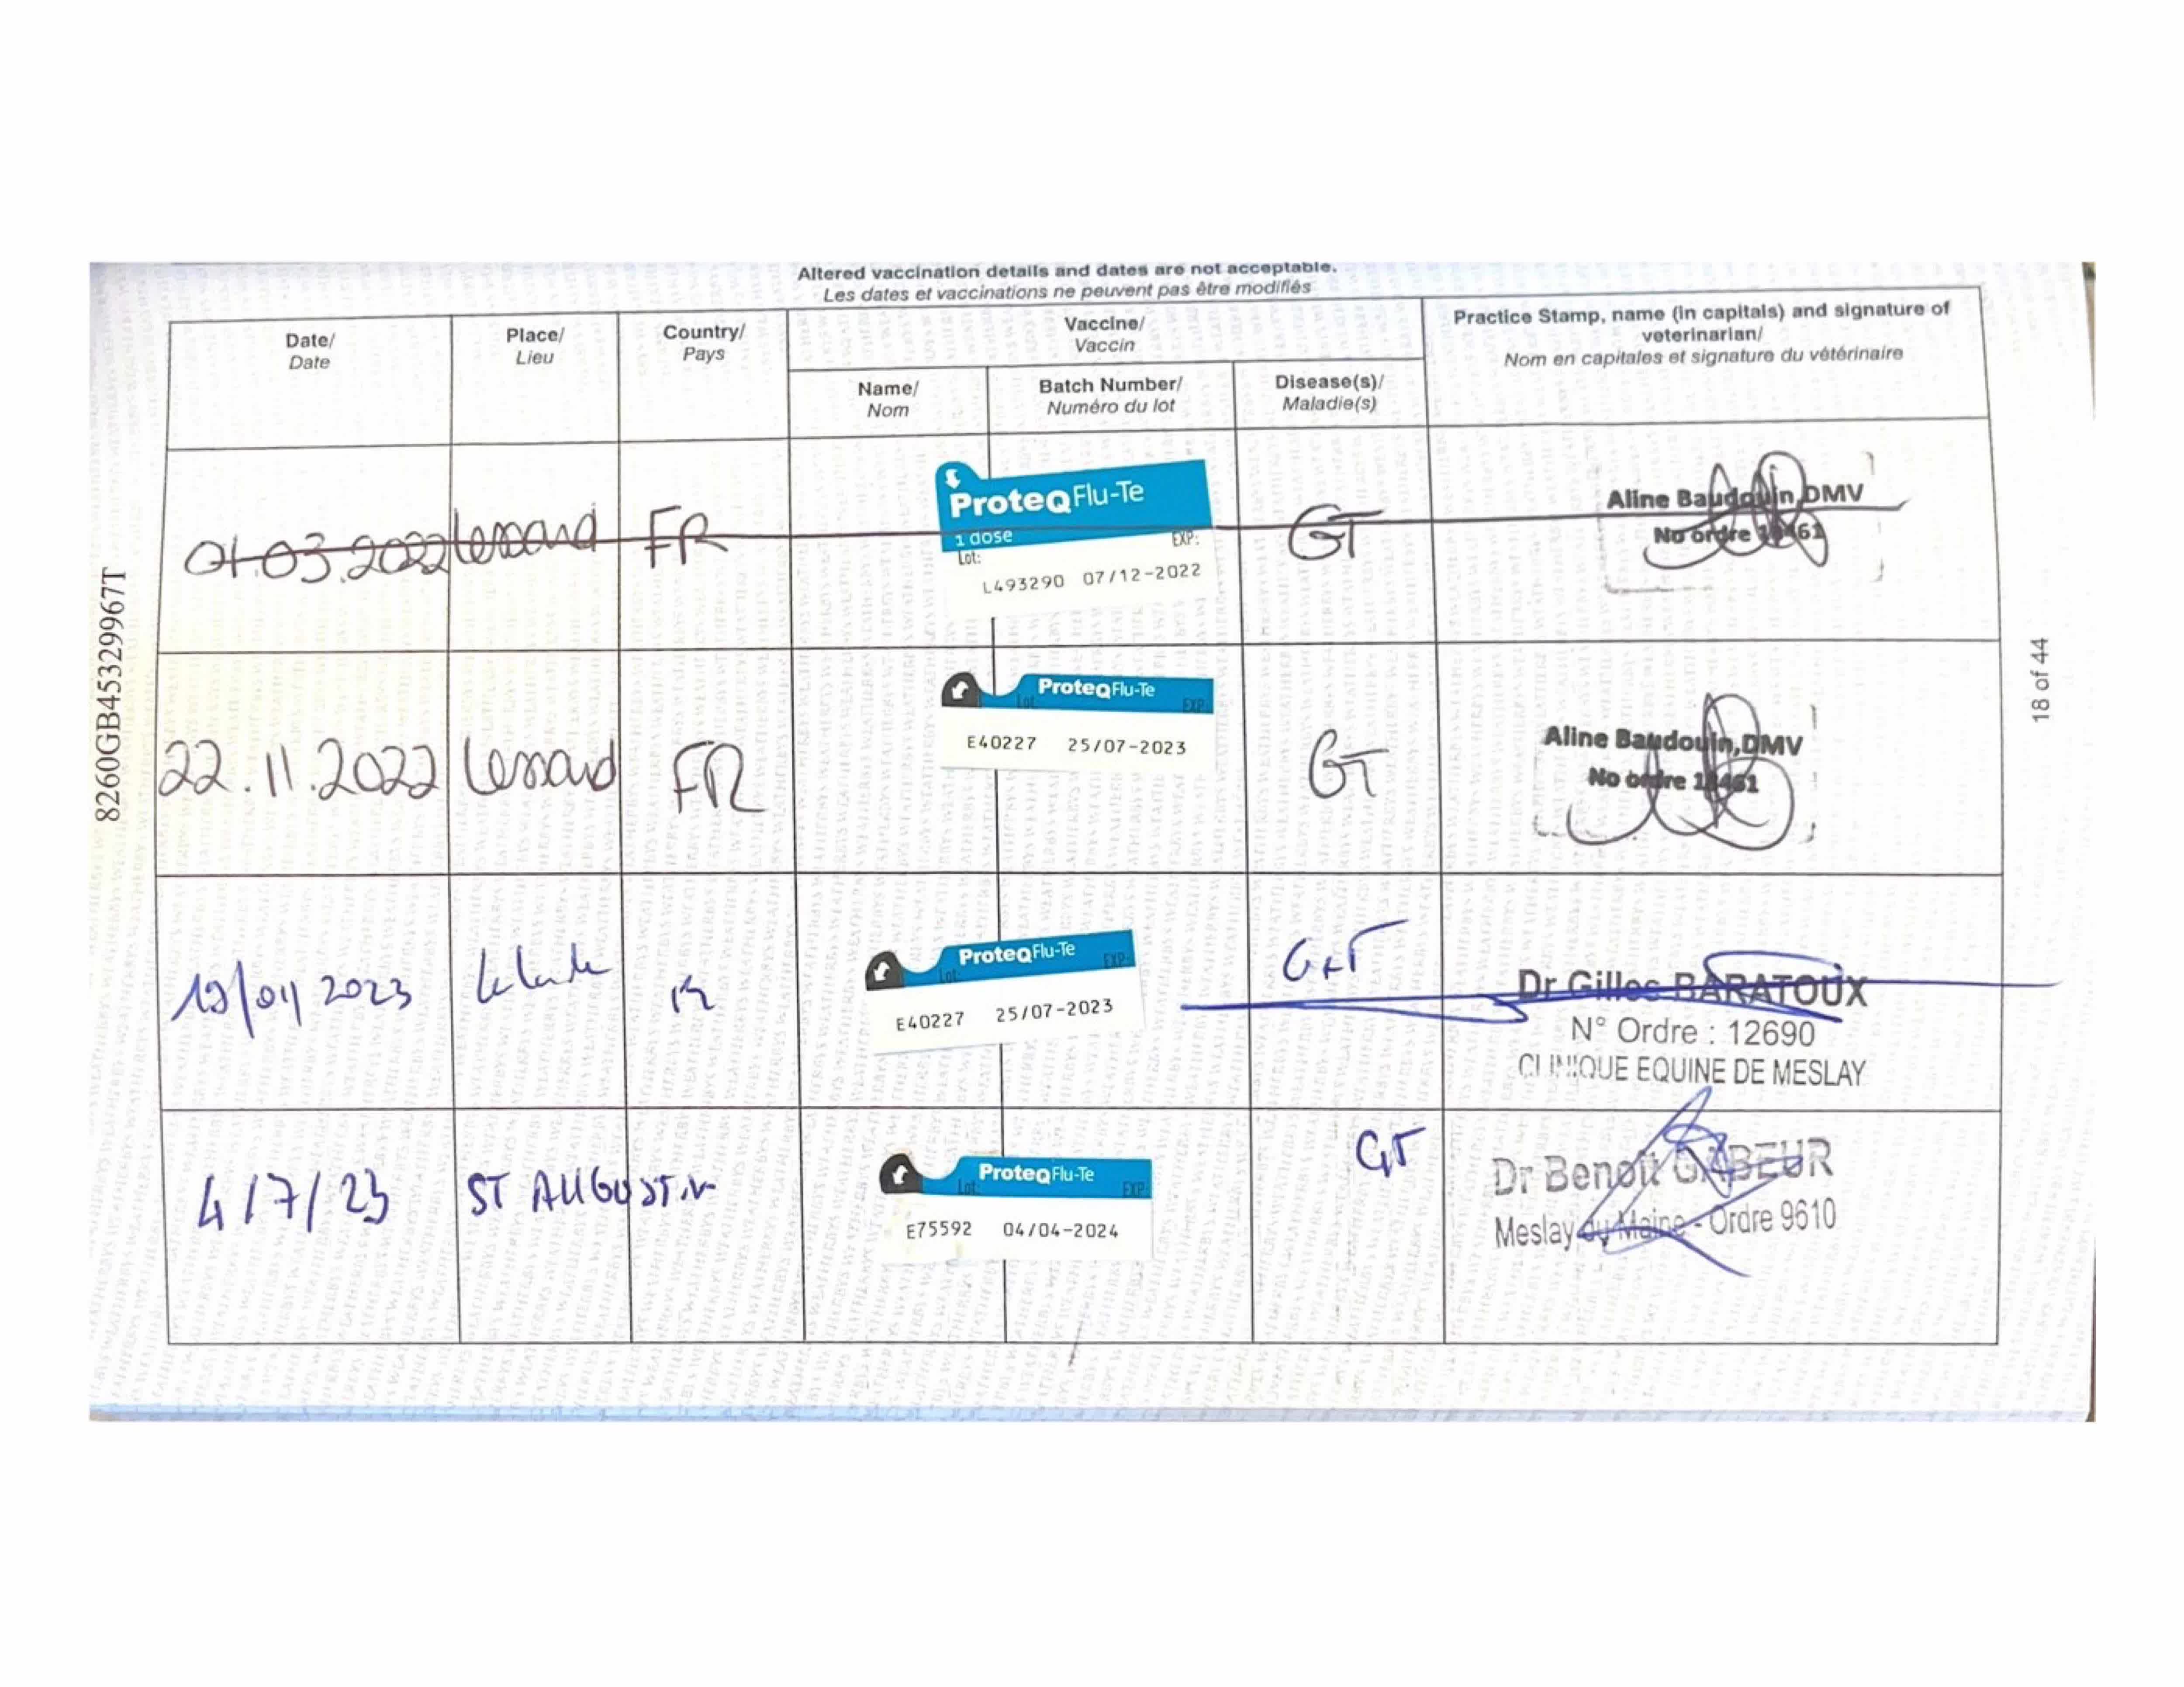 Altered vaccination details and dates are not acceptable.
Les dates et vaccinations ne peuvent pas être modifiés
Date/
Date
Place/
Lieu
Country/
Pays
Vaccine/
Vaccin
Name/
Nom
Batch Number/
Numéro du lot
Disease(s)/
Maladie(s)
Practice Stamp, name (in capitals) and signature of
veterinarian/
Nom en capitales et signature du vétérinaire
01.03.2022 Lessard FR
ProteqFlu-Te
1 dose
Lot: EXP:
L493290 07/12-2022
GT
Aline Baudouin,DMV
No ordre
22.11.2022 Lessard FR
ProteqFlu-Te
Lot: EXP:
E40227 25/07-2023
GT
Aline Baudouin,DMV
No ordre
2023
ProteqFlu-Te
Lot: EXP:
E40227 25/07-2023
G+T
Dr Gilles BARATOUX
N° Ordre : 12690
CLINIQUE EQUINE DE MESLAY
4/7/23 ST AUGUSTIN
ProteqFlu-Te
Lot: EXP:
E75592 04/04-2024
GT
Dr Benoît GABEUR
Meslay du Maine - Ordre 9610
8260GB45329967T
18 of 44